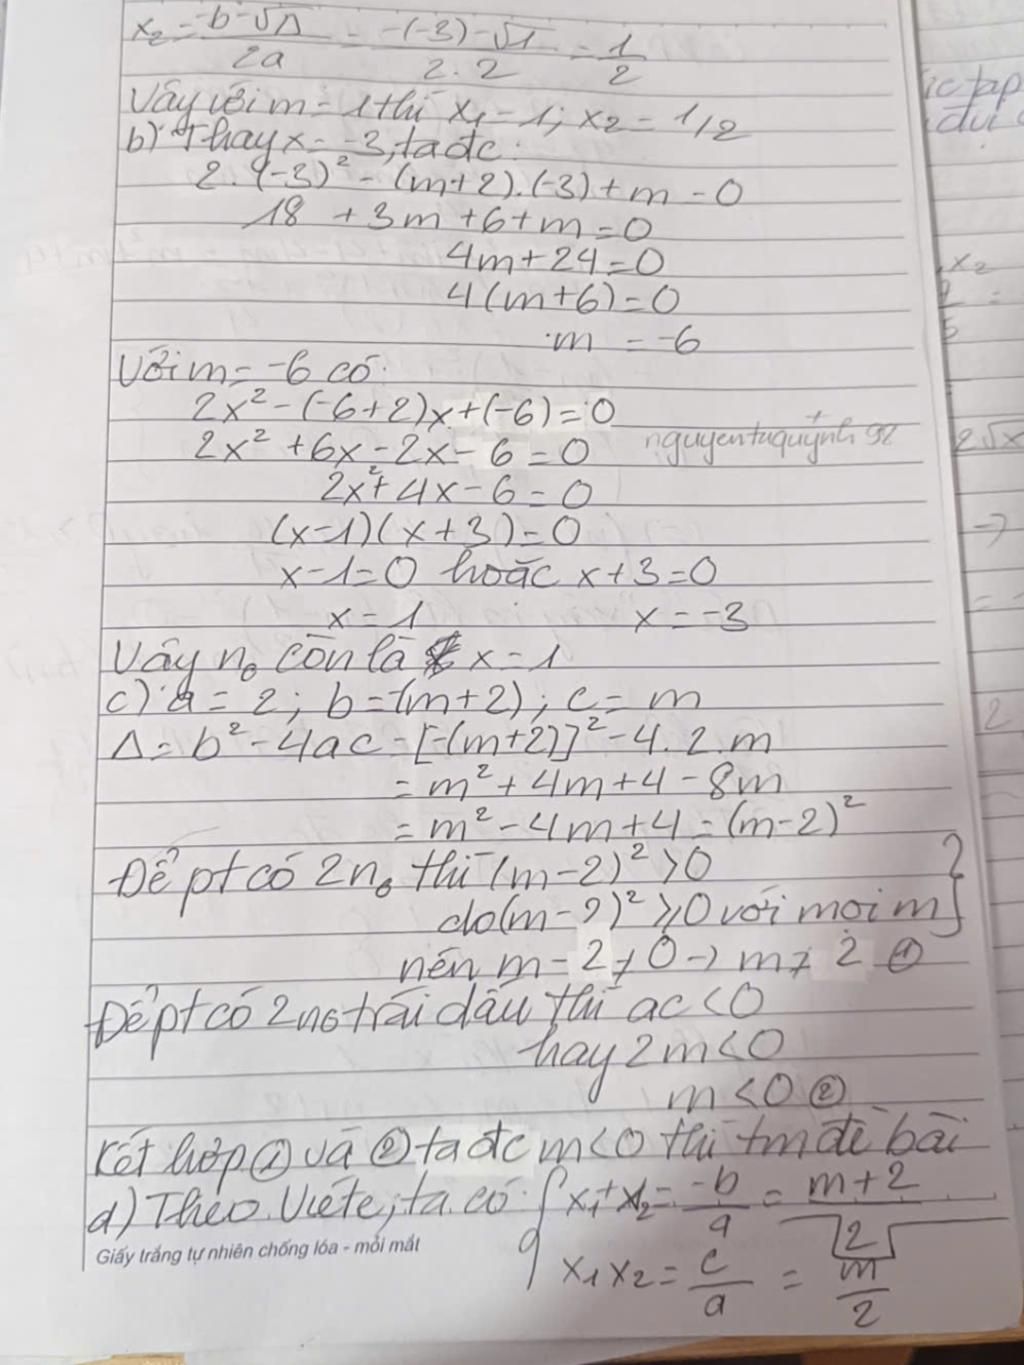 x₂ = (-b - √Δ)/2a = (-(-3) - √1)/(2.2) = 1/2
Vây với m = 1 thì x₁ = 1; x₂ = 1/2
b) Thay x = -3, ta đc:
2.(-3)² - (m+2).(-3) + m = 0
18 + 3m + 6 + m = 0
4m + 24 = 0
4(m+6) = 0
m = -6
Với m = -6 có:
2x² - (-6+2)x + (-6) = 0
2x² + 6x - 2x - 6 = 0
nguyentuquỳnh 92
2x² + 4x - 6 = 0
(x-1)(x+3) = 0
x-1=0 hoặc x+3=0
x = 1 x = -3
Vây n₀ còn là x = 1
c) a = 2; b = -(m+2); c = m
Δ = b² - 4ac = [-(m+2)]² - 4.2.m
= m² + 4m + 4 - 8m
= m² - 4m + 4 = (m-2)²
Để pt có 2n₀ thì (m-2)² > 0
do (m-2)² ≥ 0 với mọi m
nên m - 2 ≠ 0 → m ≠ 2 ①
Để pt có 2n₀ trái dấu thì ac < 0
hay 2m < 0
m < 0 ②
Kết hợp ① và ② ta đc m < 0 thì tm đề bài
d) Theo Viète, ta có: { x₁ + x₂ = -b/a = (m+2)/2
x₁x₂ = c/a = m/2
Giấy trắng tự nhiên chống lóa - mỏi mắt